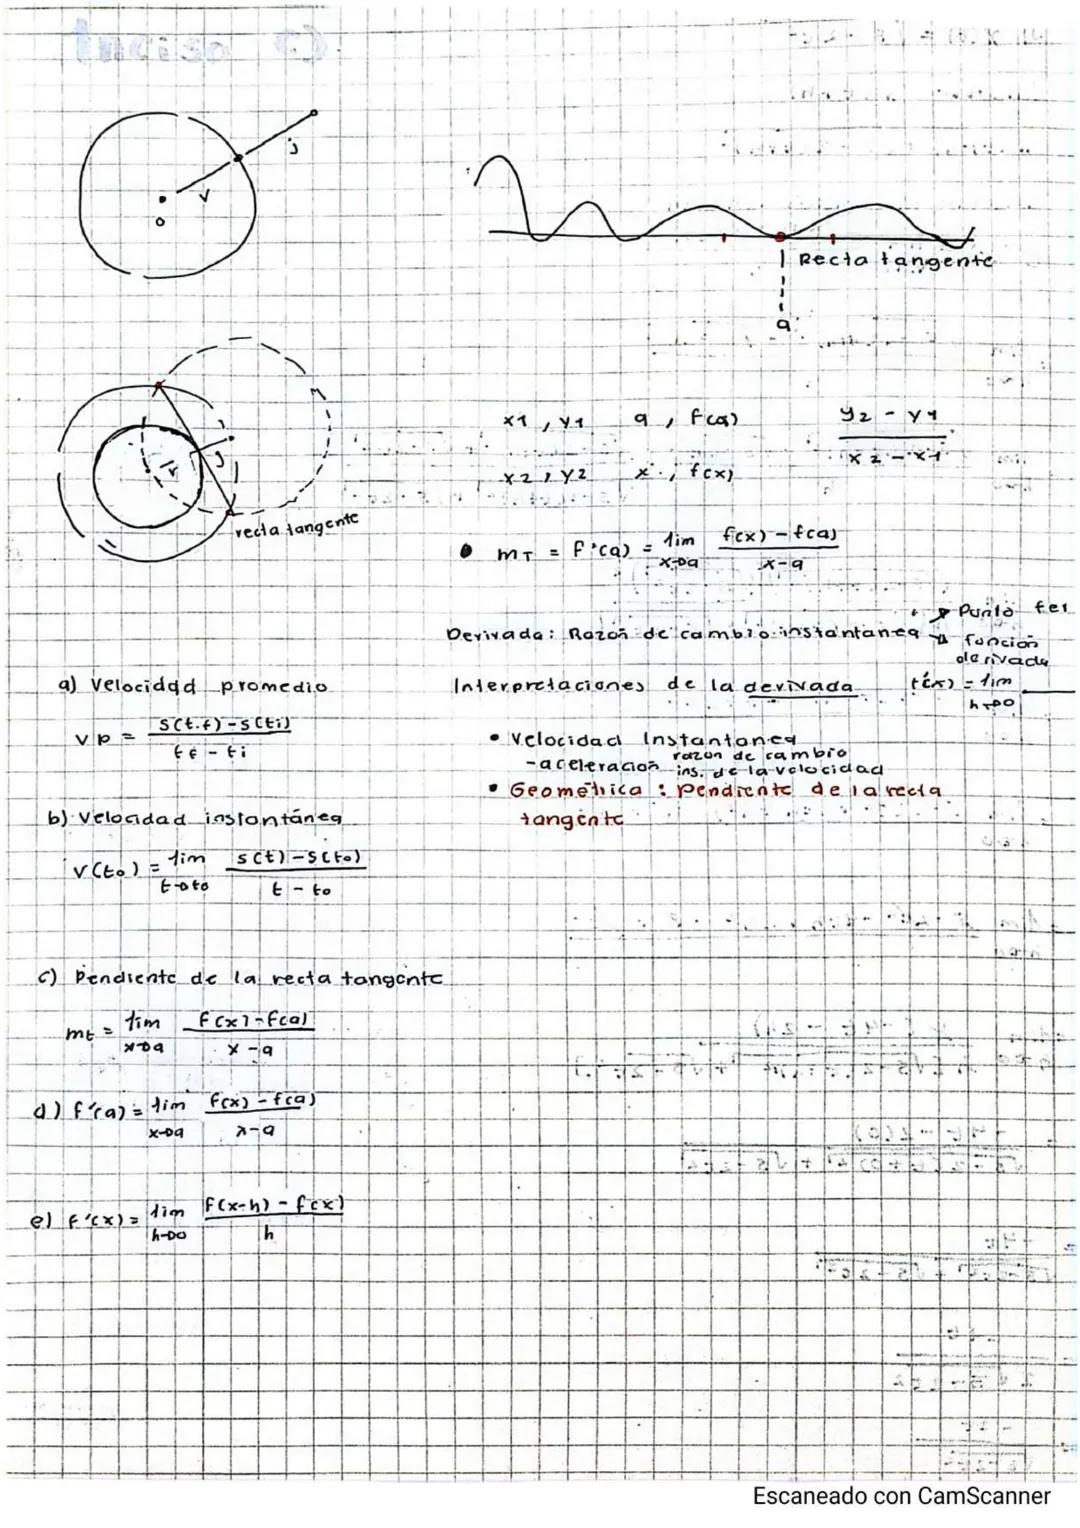 j
v
o
Recta tangente
a
r
j
recta tangente
x1 , y1   a , f(a)   y2 - y1
x2 , y2   x , f(x)   x2 - x1
• mT = f'(a) = lim f(x) - f(a)
x→a x - a
Derivada: Razón de cambio instantanea → Punto
→ función
derivada
Interpretaciones de la derivada f'(x) = lim
h→0
• Velocidad Instantanea
- aceleracion razon de cambio
ins. de la velocidad
• Geométrica : Pendiente de la recta
tangente
a) Velocidad promedio
vp = s(tf) - s(ti)
tf - ti
b) Velocidad instantánea
v(to) = lim s(t) - s(to)
t→to t - to
c) Pendiente de la recta tangente
mt = lim f(x) - f(a)
x→a x - a
d) f'(a) = lim f(x) - f(a)
x→a x - a
e) f'(x) = lim f(x-h) - f(x)
h→0 h
Escaneado con CamScanner